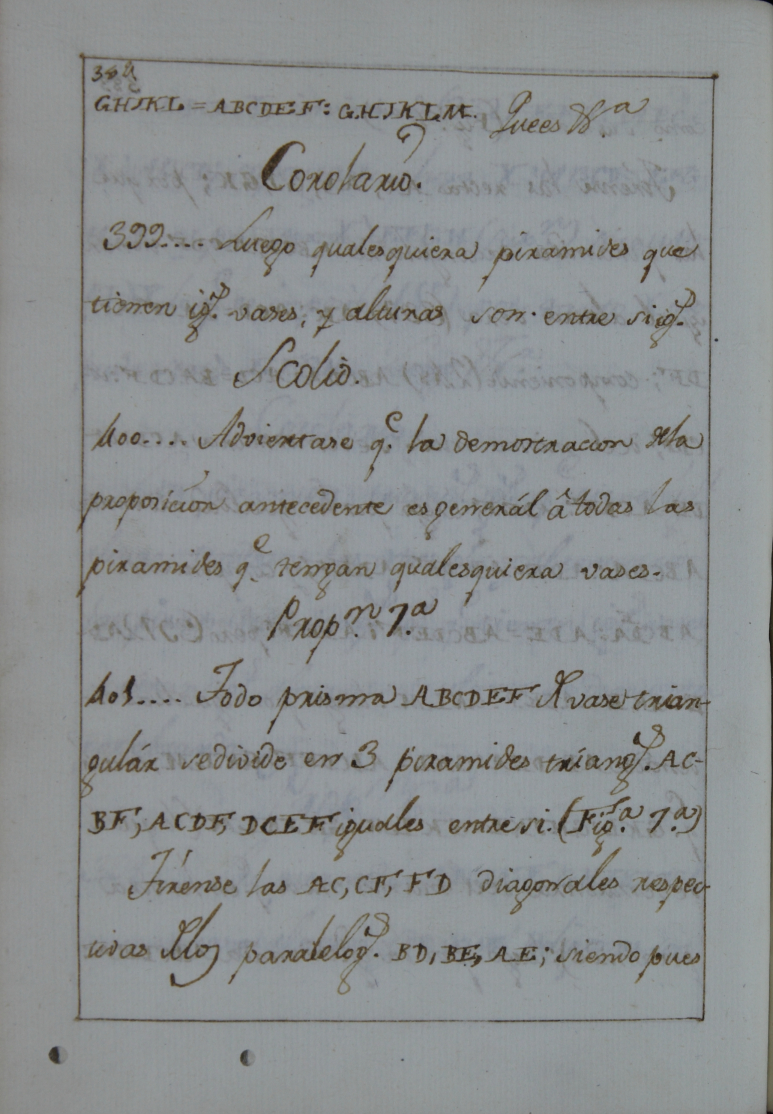 384
GHIKL = ABCDEF: GHIKLM. Luees &.a
Corolario.
399.... Luego qualesquiera piramides que
tienen ig.s vases, y alturas son entre si ig.s
Scolio.
400.... Adviertase q.e la demostracion dela
proposicion antecedente es generál â todas las
piramides q.e tengan qualesquiera vases.
Prop.n 7.a
401.... Todo prisma ABCDEF de vase trian-
gulár se divide en 3 piramides triang.s AC-
BF, ACDF, DCEF iguales entre si. (Fig.a 7.a)
Tirense las AC, CF, FD diagonales respec-
tivas delos paralelog.s BD, BE, AE; siendo pues